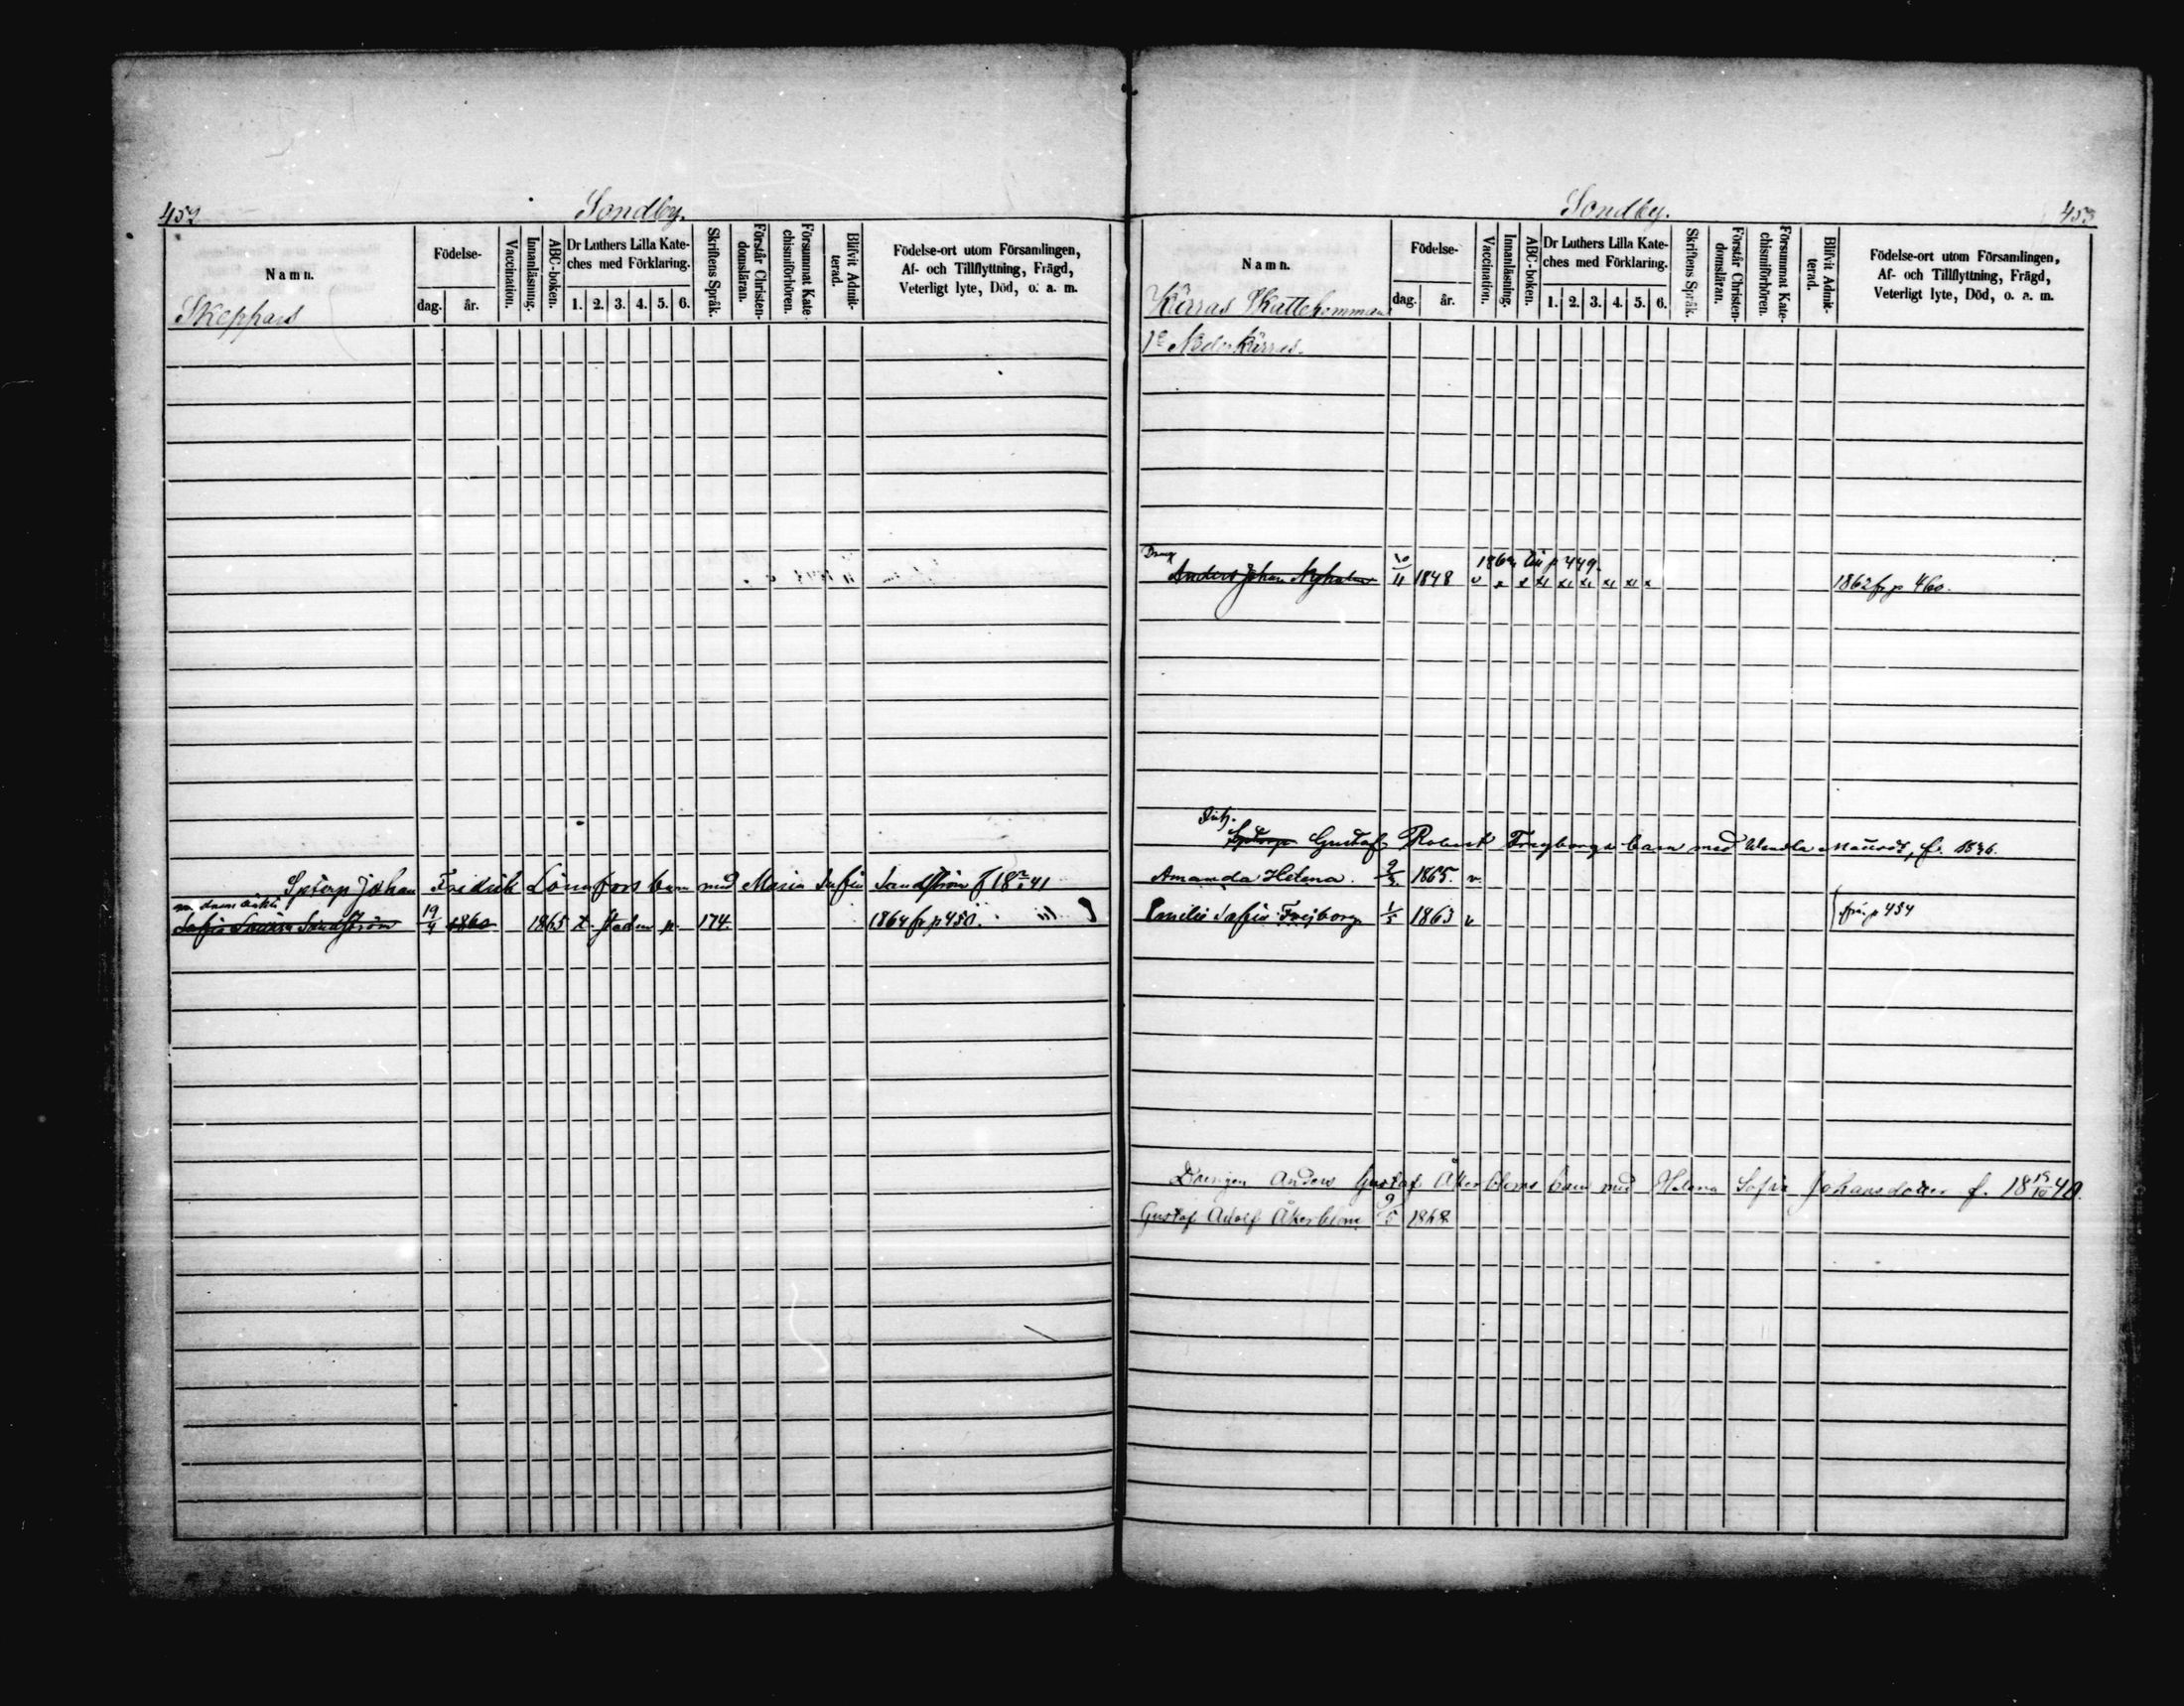 452
Sondby.
Namn.
Födelse-
dag. år.
Vaccination.
Innanläsning.
ABC-boken.
Dr Luthers Lilla Kate-
ches med Förklaring.
1. 2. 3. 4. 5. 6.
Skriftens Språk.
Förstår Christen-
domsläran.
Försummat Kate-
chismiförhören.
Blifvit Admit-
terad.
Födelse-ort utom Församlingen,
Af- och Tillflyttning, Frägd,
Veterligt lyte, Död, o. a. m.
Skeppars
Johan Fridrik Lönnfors barn med Maria Sofia Sandström f 18 41
Sofia Lovisa Sandström 19/4 1860 1865 t. staden p. 174. 1864 fr p 450.
Sondby.
453
Namn.
Födelse-
dag. år.
Vaccination.
Innanläsning.
ABC-boken.
Dr Luthers Lilla Kate-
ches med Förklaring.
1. 2. 3. 4. 5. 6.
Skriftens Språk.
Förstår Christen-
domsläran.
Försummat Kate-
chismiförhören.
Blifvit Admit-
terad.
Födelse-ort utom Församlingen,
Af- och Tillflyttning, Frägd,
Veterligt lyte, Död, o. a. m.
Kärras
p 449.
Anders Johan Nyholm 11 1848 v x x x x x x x x 1862 fr p 460.
Gustaf Robert barn med Wendla f. 1836.
Amanda Helena. 1865. v.
Emilie Sofia Frejborg 1/5 1863 v frn. p 454
Drengen Anders Gustaf Åkerbloms barn med Helena Sofia Johansdotter f. 18 40.
Gustaf Adolf Åkerblom 9/5 1868